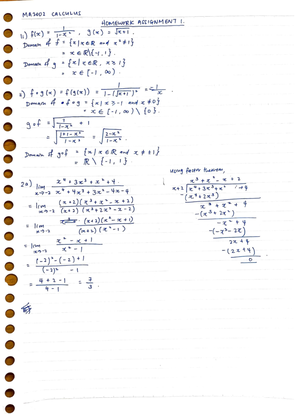 MA2002 CALCULUS
HOMEWORK ASSIGNMENT 1.
1i) f(x) = 1/(1-x²), g(x) = √(x+1).
Domain of f = {x | x∈ℝ and x² ≠ 1}
= x ∈ ℝ\{-1, 1}.
Domain of g = {x | x∈ℝ, x ≥ 1}
= x ∈ [-1, ∞).
ii) f∘g(x) = f(g(x)) = 1/(1-(√(x+1))²) = -1/x
Domain of f∘g = {x | x ≥ -1 and x ≠ 0}
= x ∈ [-1, ∞) \ {0}.
g∘f = √(1/(1-x²) + 1)
= √((1+1-x²)/(1-x²)) = √((2-x²)/(1-x²))
Domain of g∘f = {x | x ∈ ℝ and x ≠ ±1}
= ℝ \ {-1, 1}
2a) lim x→-2 (x⁴+3x³+x²+4)/(x⁴+4x³+3x²-4x-4)
= lim x→-2 (x+2)(x³+x²-x+2)/(x+2)(x³+2x²-x-2)
= lim x→-2 (x+2)(x²-x+1)/(x+2)(x²-1)
= lim x→-2 (x²-x+1)/(x²-1)
= ((-2)²-(-2)+1)/((-2)²-1)
= (4+2+1)/(4-1) = 7/3
Using factor theorem,
x³+x²-x+2
x+2 √(x⁴+3x³+x²+4)
-(x⁴+2x³)
x³+x²+4
-(x³+2x²)
-x²+4
-(-x²-2x)
2x+4
-(2x+4)
0